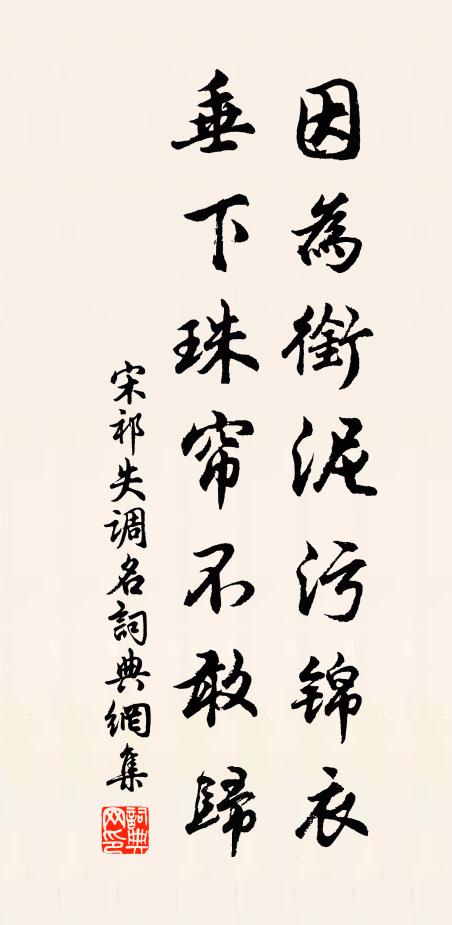 因為銜泥污錦衣
垂下珠帘不敢歸
宋祁失調名詞典網集
詞典网印